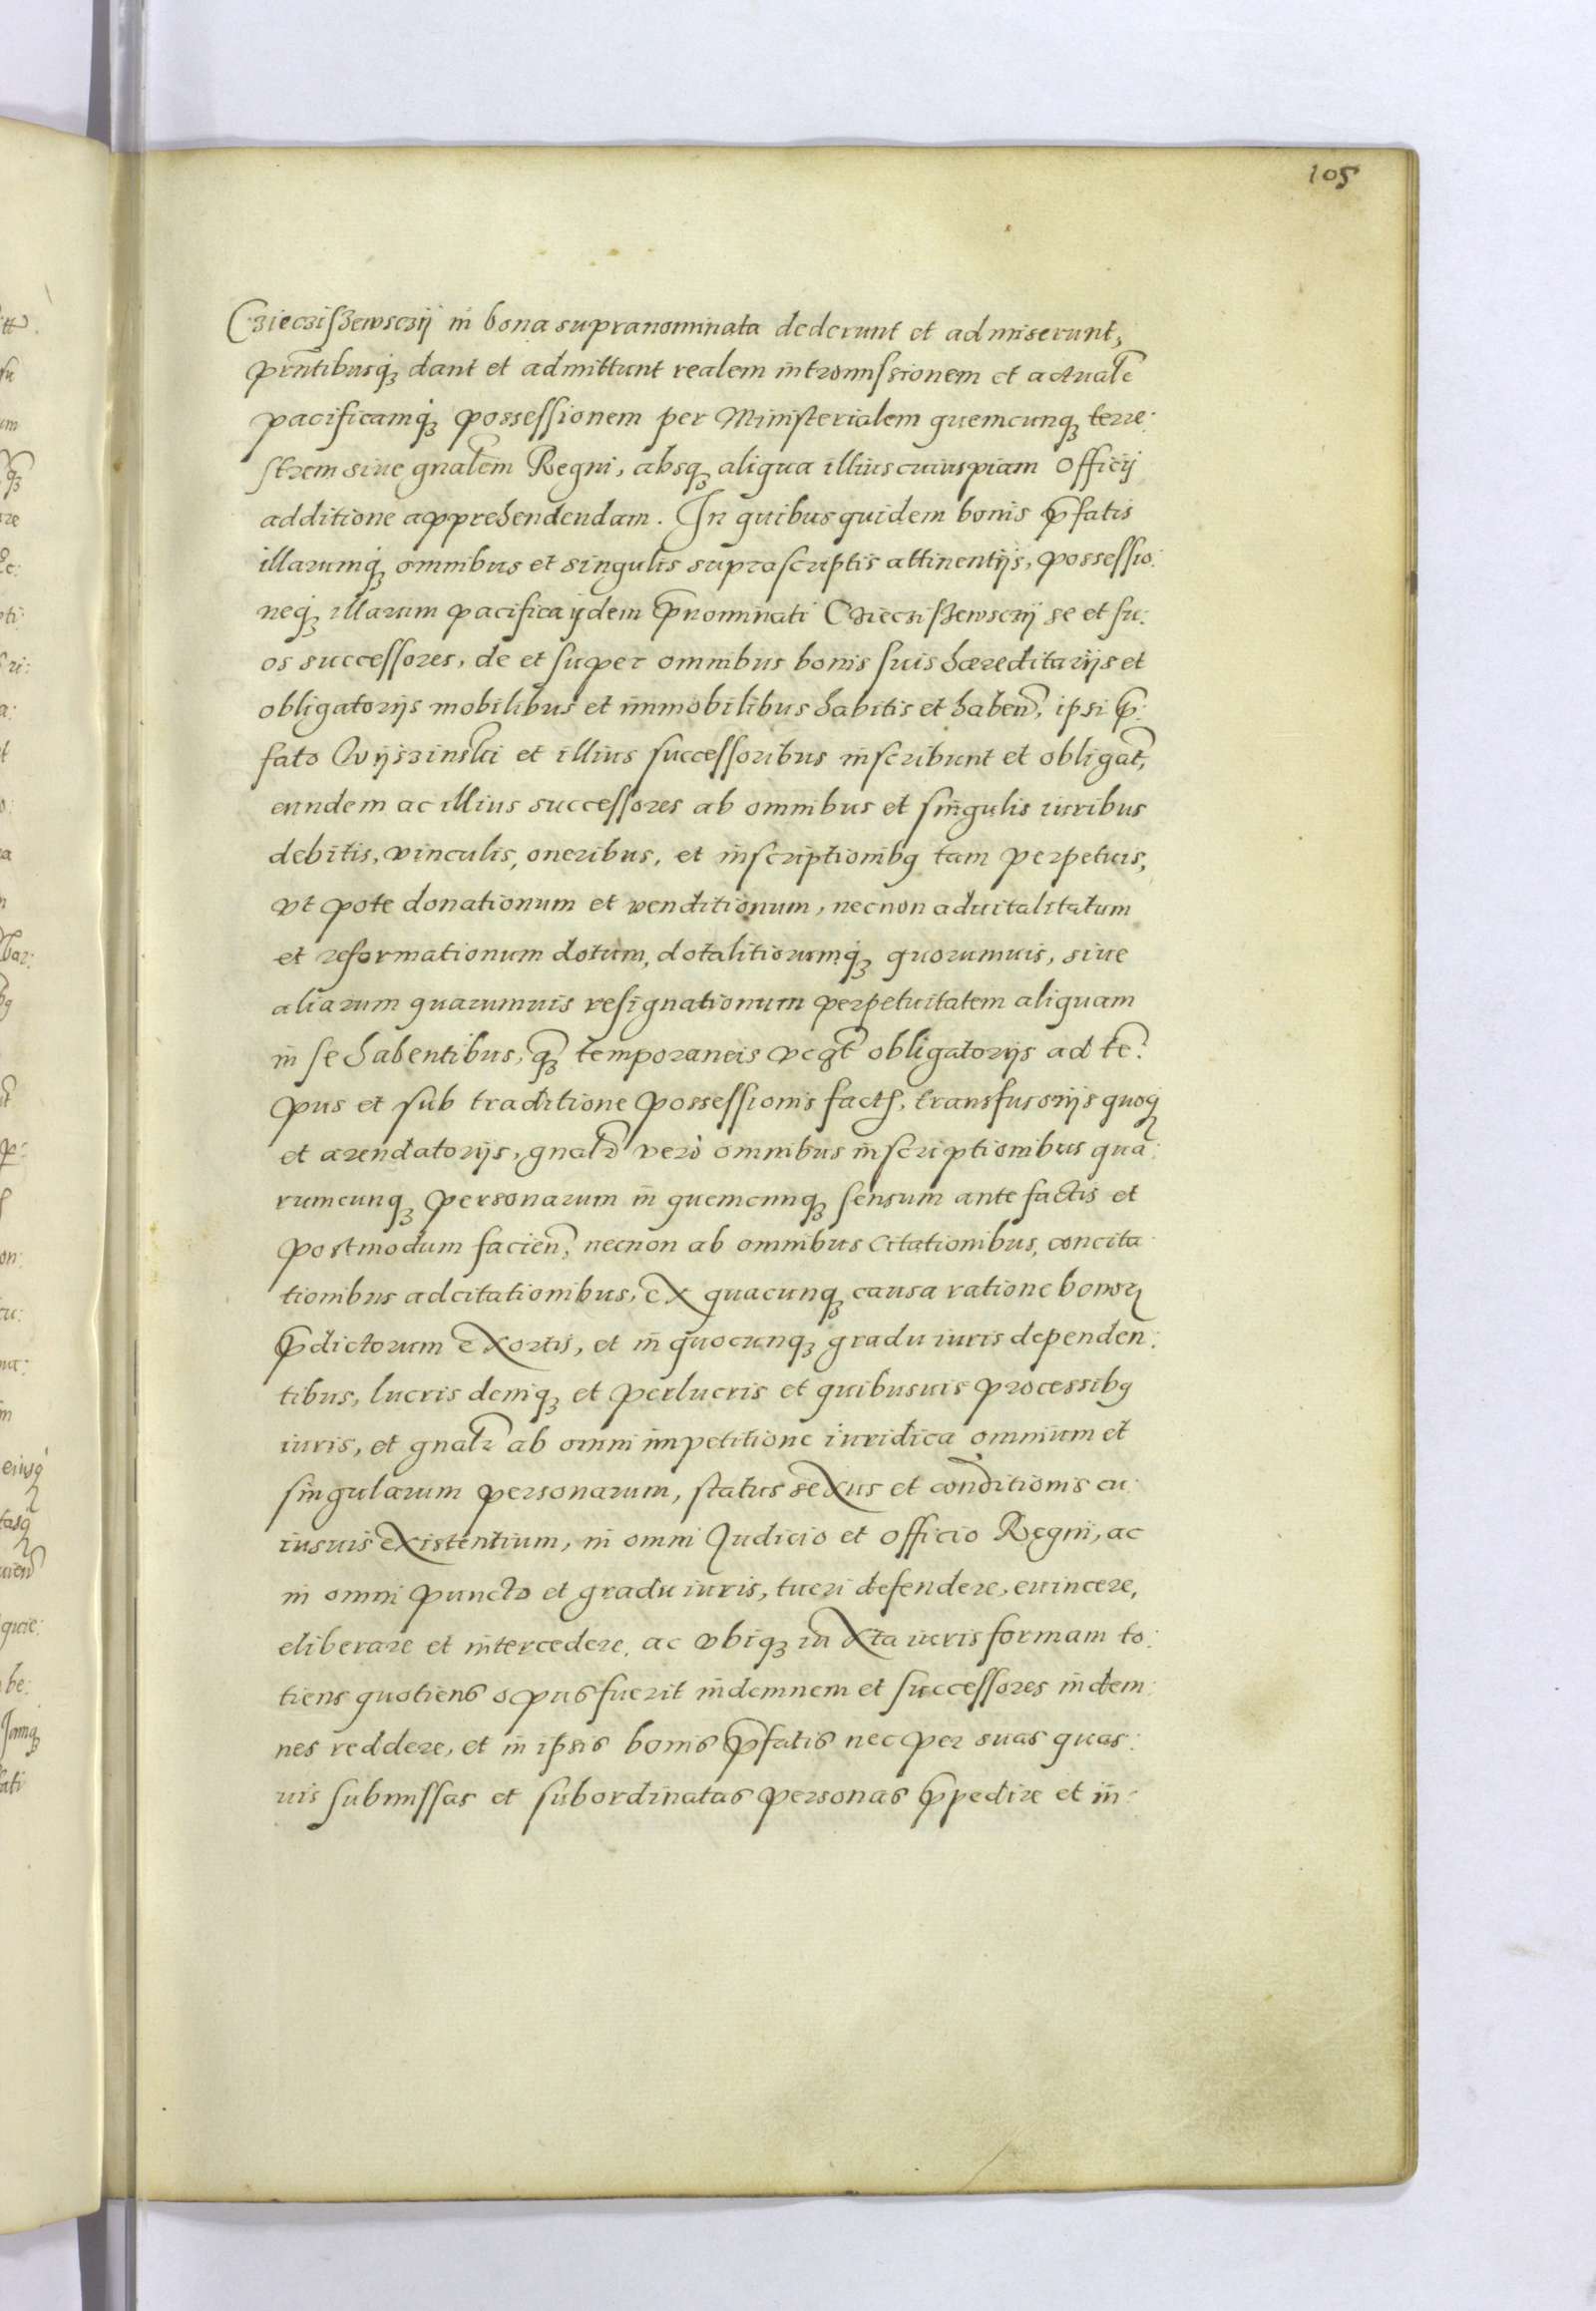 105
Czieczißewsczij in bona supranominata dederunt et admiserunt,
prñtibusq́ꝫ dant et admittunt realem intromissionem et actualẽ
pacificamq́ꝫ possessionem per Ministerialem quemcunqꝫ terre:
strem siue gnalem Regni, absqꝫ aliqua illius cuiuspiam Officij
additione apprehendendam. In quibus quidem bonis p̃fatis
illarumq́ꝫ omnibus et singulis suprascriptis attinentijs, possessio:
neq́ꝫ illarum pacifica ijdem p̃nominati Czieczißewsczij se et su:
os successores, de et super omnibus bonis suis hæreditarijs et
obligatorijs mobilibus et immobilibus habitis et habeñ, ipsi p̃:
fato Wijszinski et illius successoribus inscribunt et obligãt,
eundem ac illius successores ab omnibus et singulis iuribus
debitis, vinculis, oneribus, et inscriptionibꝯ tam perpetuis,
vt pote donationum et venditionum, necnon aduitalitatum
et reformationum dotum, dotalitiorumq́ꝫ quorumuis, siue
aliarum quarumuis resignationum perpetuitatem aliquam
in se habentibus, q̃ꝫ temporaneis obligatorijs ad tẽ:
pus et sub traditione possessionis fact, transfusorijs quoqꝫ
et arendatorijs, gnalr̃ verò omnibus inscriptionibus qua:
rumcunqꝫ personarum in quemcunqꝫ sensum ante factis et
postmodum facieñ, necnon ab omnibus Citationibus, concita:
tionibus adcitationibus, ex quacunqꝫ causa ratione bonoꝝ
p̃dictorum exortis, et in quocunqꝫ gradu iuris dependen:
tibus, lucris deniqꝫ et perlucris et quibusuis processibꝯ
iuris, et gnalr̃ ab omni impetitione iuridica omnium et
singularum personarum, status sexus et conditionis cu:
iusuis existentium, in omni Iudicio et Officio Regni, ac
in omni puncto et gradu iuris, tueri defendere, euincere,
eliberare et intercedere, ac vbiqꝫ iuxta iuris formam to:
tiens quotiens opus fuerit indemnem et successores indem:
nes reddere, et in ipsis bonis p̃fatis nec per suas quas:
uis submissas et subordinatas personas p̃pedire et in: